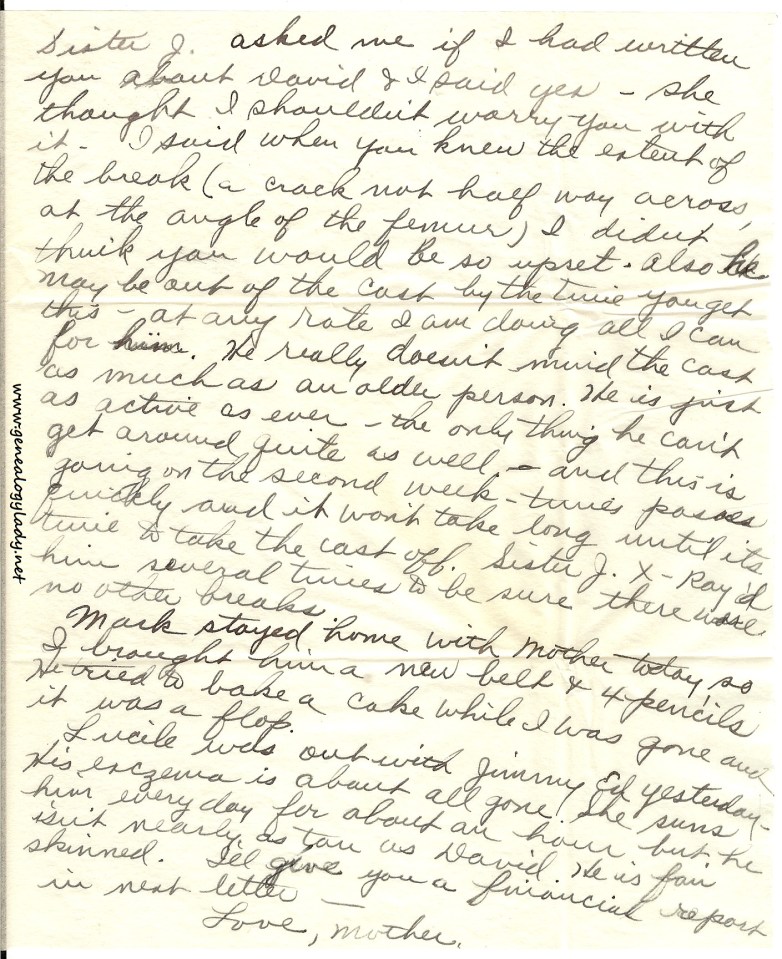 Sister J. asked me if I had written
you about David & I said yes - she
thought I shouldn't worry you with
it - I said when you knew the extent of
the break (a crack not half way across,
at the angle of the femur) I didn't
think you would be so upset. Also he
may be out of the cast by the time you get
this - at any rate I am doing all I can
for him. He really doesn't mind the cast
as much as an older person. He is just
as active as ever - the only thing he can't
get around quite as well. - and this is
going on the second week - times passes
quickly and it won't take long until its
time to take the cast off. Sister J. X-Ray'd
him several times to be sure there were
no other breaks.
Mark stayed home with Mother today, so
I brought him a new belt & 4 pencils
He tried to bake a cake while I was gone and
it was a flop.
Lucile was out with Jimmy Ed yesterday -
His exczema is about all gone. She suns
him every day for about an hour but he
isn't nearly as tan as David. He is fair
skinned. I'll give you a financial report
in next letter -
Love, Mother.
www.genealogylady.net